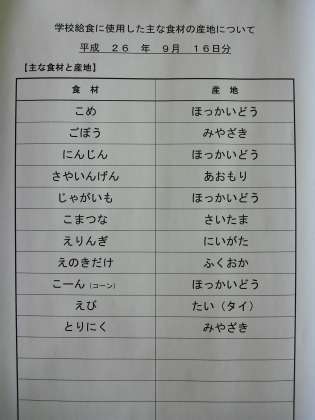 学校給食に使用した主な食材の産地について
平成 26 年 9月 16日分
【主な食材と産地】
食 材 産 地
こめ ほっかいどう
ごぼう みやざき
にんじん ほっかいどう
さやいんげん あおもり
じゃがいも ほっかいどう
こまつな さいたま
えりんぎ にいがた
えのきだけ ふくおか
こーん（コーン） ほっかいどう
えび たい（タイ）
とりにく みやざき